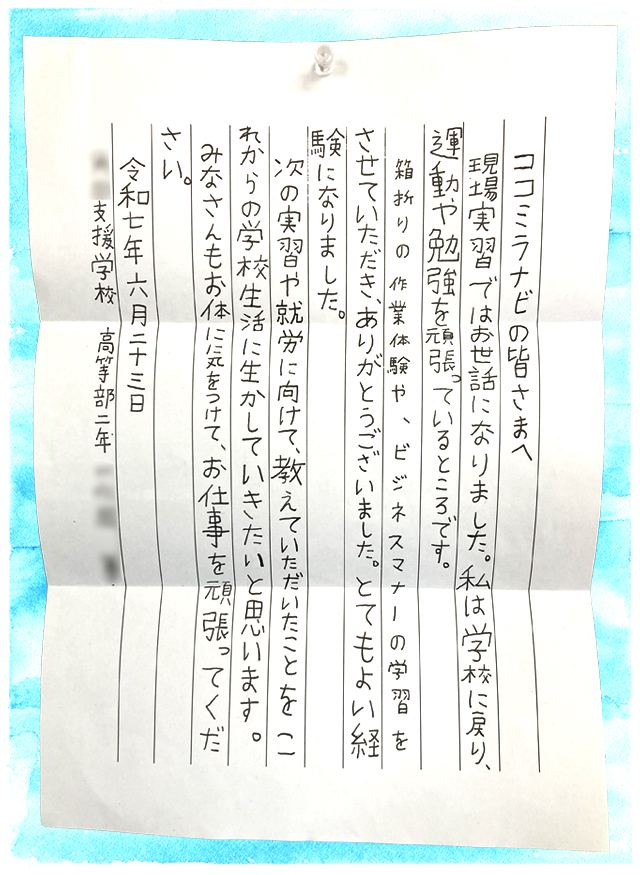 ココミラナビの皆さまへ
現場実習ではお世話になりました。私は学校に戻り、
運動や勉強を頑張っているところです。
箱折りの作業体験や、ビジネスマナーの学習を
させていただき、ありがとうございました。とてもよい経
験になりました。
次の実習や就労に向けて、教えていただいたことをこ
れからの学校生活に生かしていきたいと思います。
みなさんもお体に気をつけて、お仕事を頑張ってくだ
さい。
令和七年六月二十三日
支援学校 高等部二年